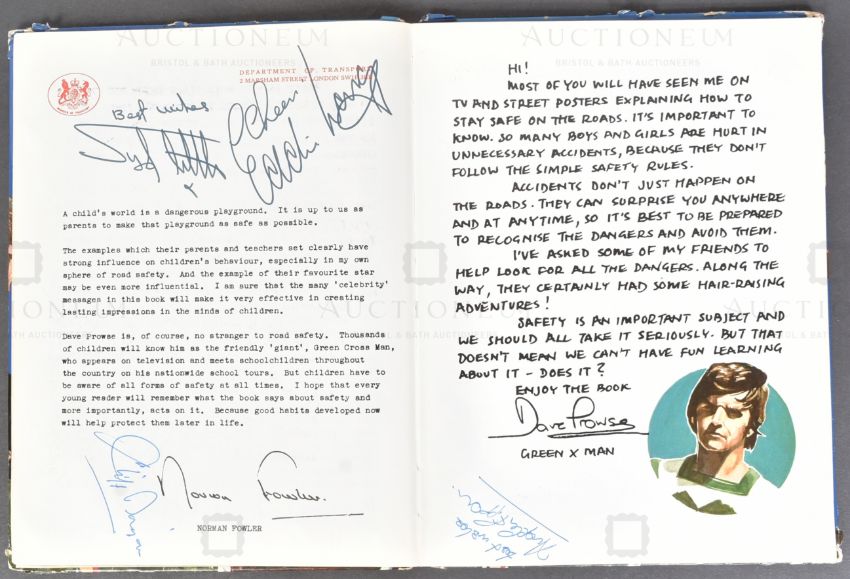 AUCTIONEUM
BRISTOL & BATH AUCTIONEERS
DEPARTMENT OF TRANSPORT
2 MARSHAM STREET LONDON SW1P 3EB
Best wishes
Syd Little
&
Cheers
Eddie Large
A child's world is a dangerous playground. It is up to us as
parents to make that playground as safe as possible.
The examples which their parents and teachers set clearly have
strong influence on children's behaviour, especially in my own
sphere of road safety. And the example of their favourite star
may be even more influential. I am sure that the many 'celebrity'
messages in this book will make it very effective in creating
lasting impressions in the minds of children.
Dave Prowse is, of course, no stranger to road safety. Thousands
of children will know him as the friendly 'giant', Green Cross Man,
who appears on television and meets schoolchildren throughout
the country on his nationwide school tours. But children have to
be aware of all forms of safety at all times. I hope that every
young reader will remember what the book says about safety and
more importantly, acts on it. Because good habits developed now
will help protect them later in life.
Norman Fowler
NORMAN FOWLER
AUCTIONEUM
BRISTOL & BATH AUCTIONEERS
HI!
MOST OF YOU WILL HAVE SEEN ME ON
TV AND STREET POSTERS EXPLAINING HOW TO
STAY SAFE ON THE ROADS. IT'S IMPORTANT TO
KNOW. SO MANY BOYS AND GIRLS ARE HURT IN
UNNECESSARY ACCIDENTS, BECAUSE THEY DON'T
FOLLOW THE SIMPLE SAFETY RULES.
ACCIDENTS DON'T JUST HAPPEN ON
THE ROADS. THEY CAN SURPRISE YOU ANYWHERE
AND AT ANYTIME, SO IT'S BEST TO BE PREPARED
TO RECOGNISE THE DANGERS AND AVOID THEM.
I'VE ASKED SOME OF MY FRIENDS TO
HELP LOOK FOR ALL THE DANGERS. ALONG THE
WAY, THEY CERTAINLY HAD SOME HAIR-RAISING
ADVENTURES!
SAFETY IS AN IMPORTANT SUBJECT AND
WE SHOULD ALL TAKE IT SERIOUSLY. BUT THAT
DOESN'T MEAN WE CAN'T HAVE FUN LEARNING
ABOUT IT - DOES IT?
ENJOY THE BOOK
Dave Prowse
GREEN X MAN